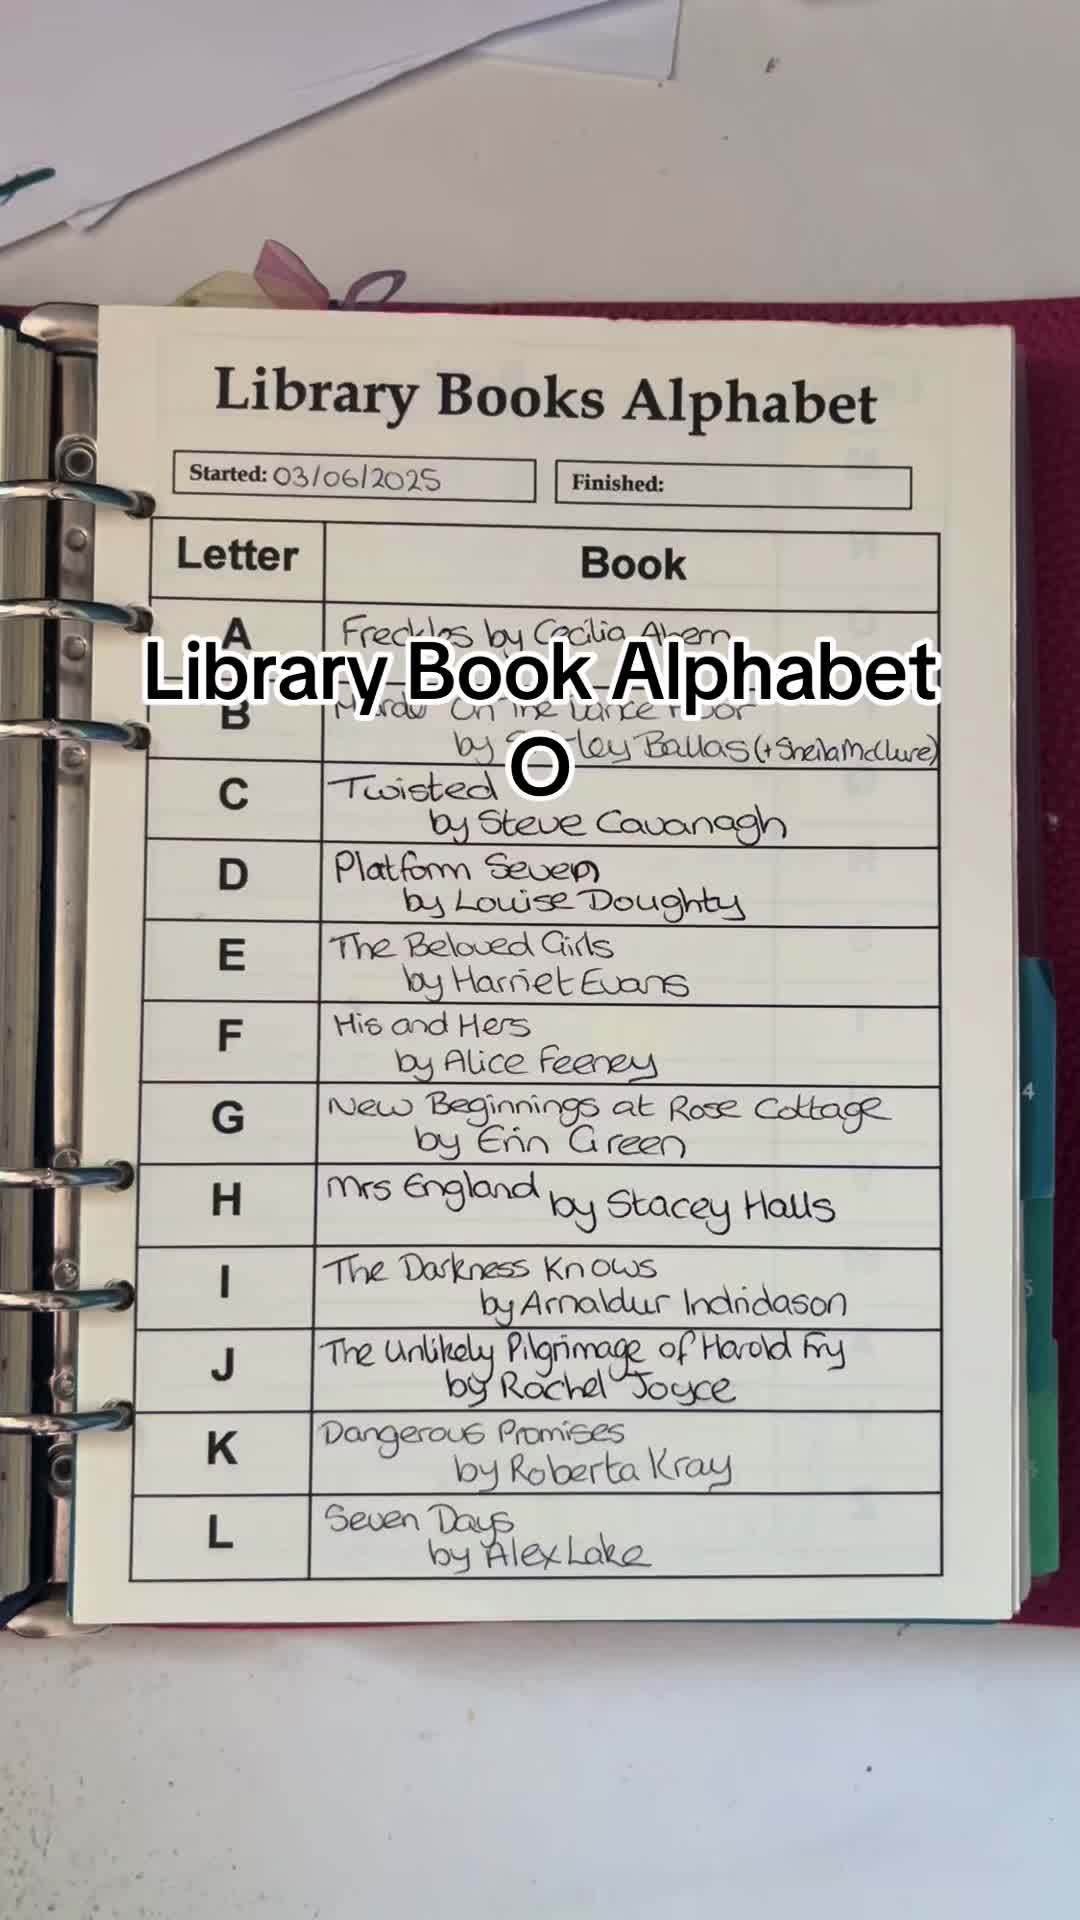 Library Books Alphabet
Started: 03/06/2025
Finished:
Letter
Book
A
Freckles by Cecilia Ahern
Library Book Alphabet
O
B
Murder On The Dance Floor
by Shirley Ballas (+ Sheila McClure)
C
Twisted
by Steve Cavanagh
D
Platform Seven
by Louise Doughty
E
The Beloved Girls
by Harriet Evans
F
His and Hers
by Alice Feeney
G
New Beginnings at Rose Cottage
by Erin Green
H
Mrs England by Stacey Halls
I
The Darkness Knows
by Arnaldur Indridason
J
The Unlikely Pilgrimage of Harold Fry
by Rachel Joyce
K
Dangerous Promises
by Roberta Kray
L
Seven Days
by Alex Lake
4
5